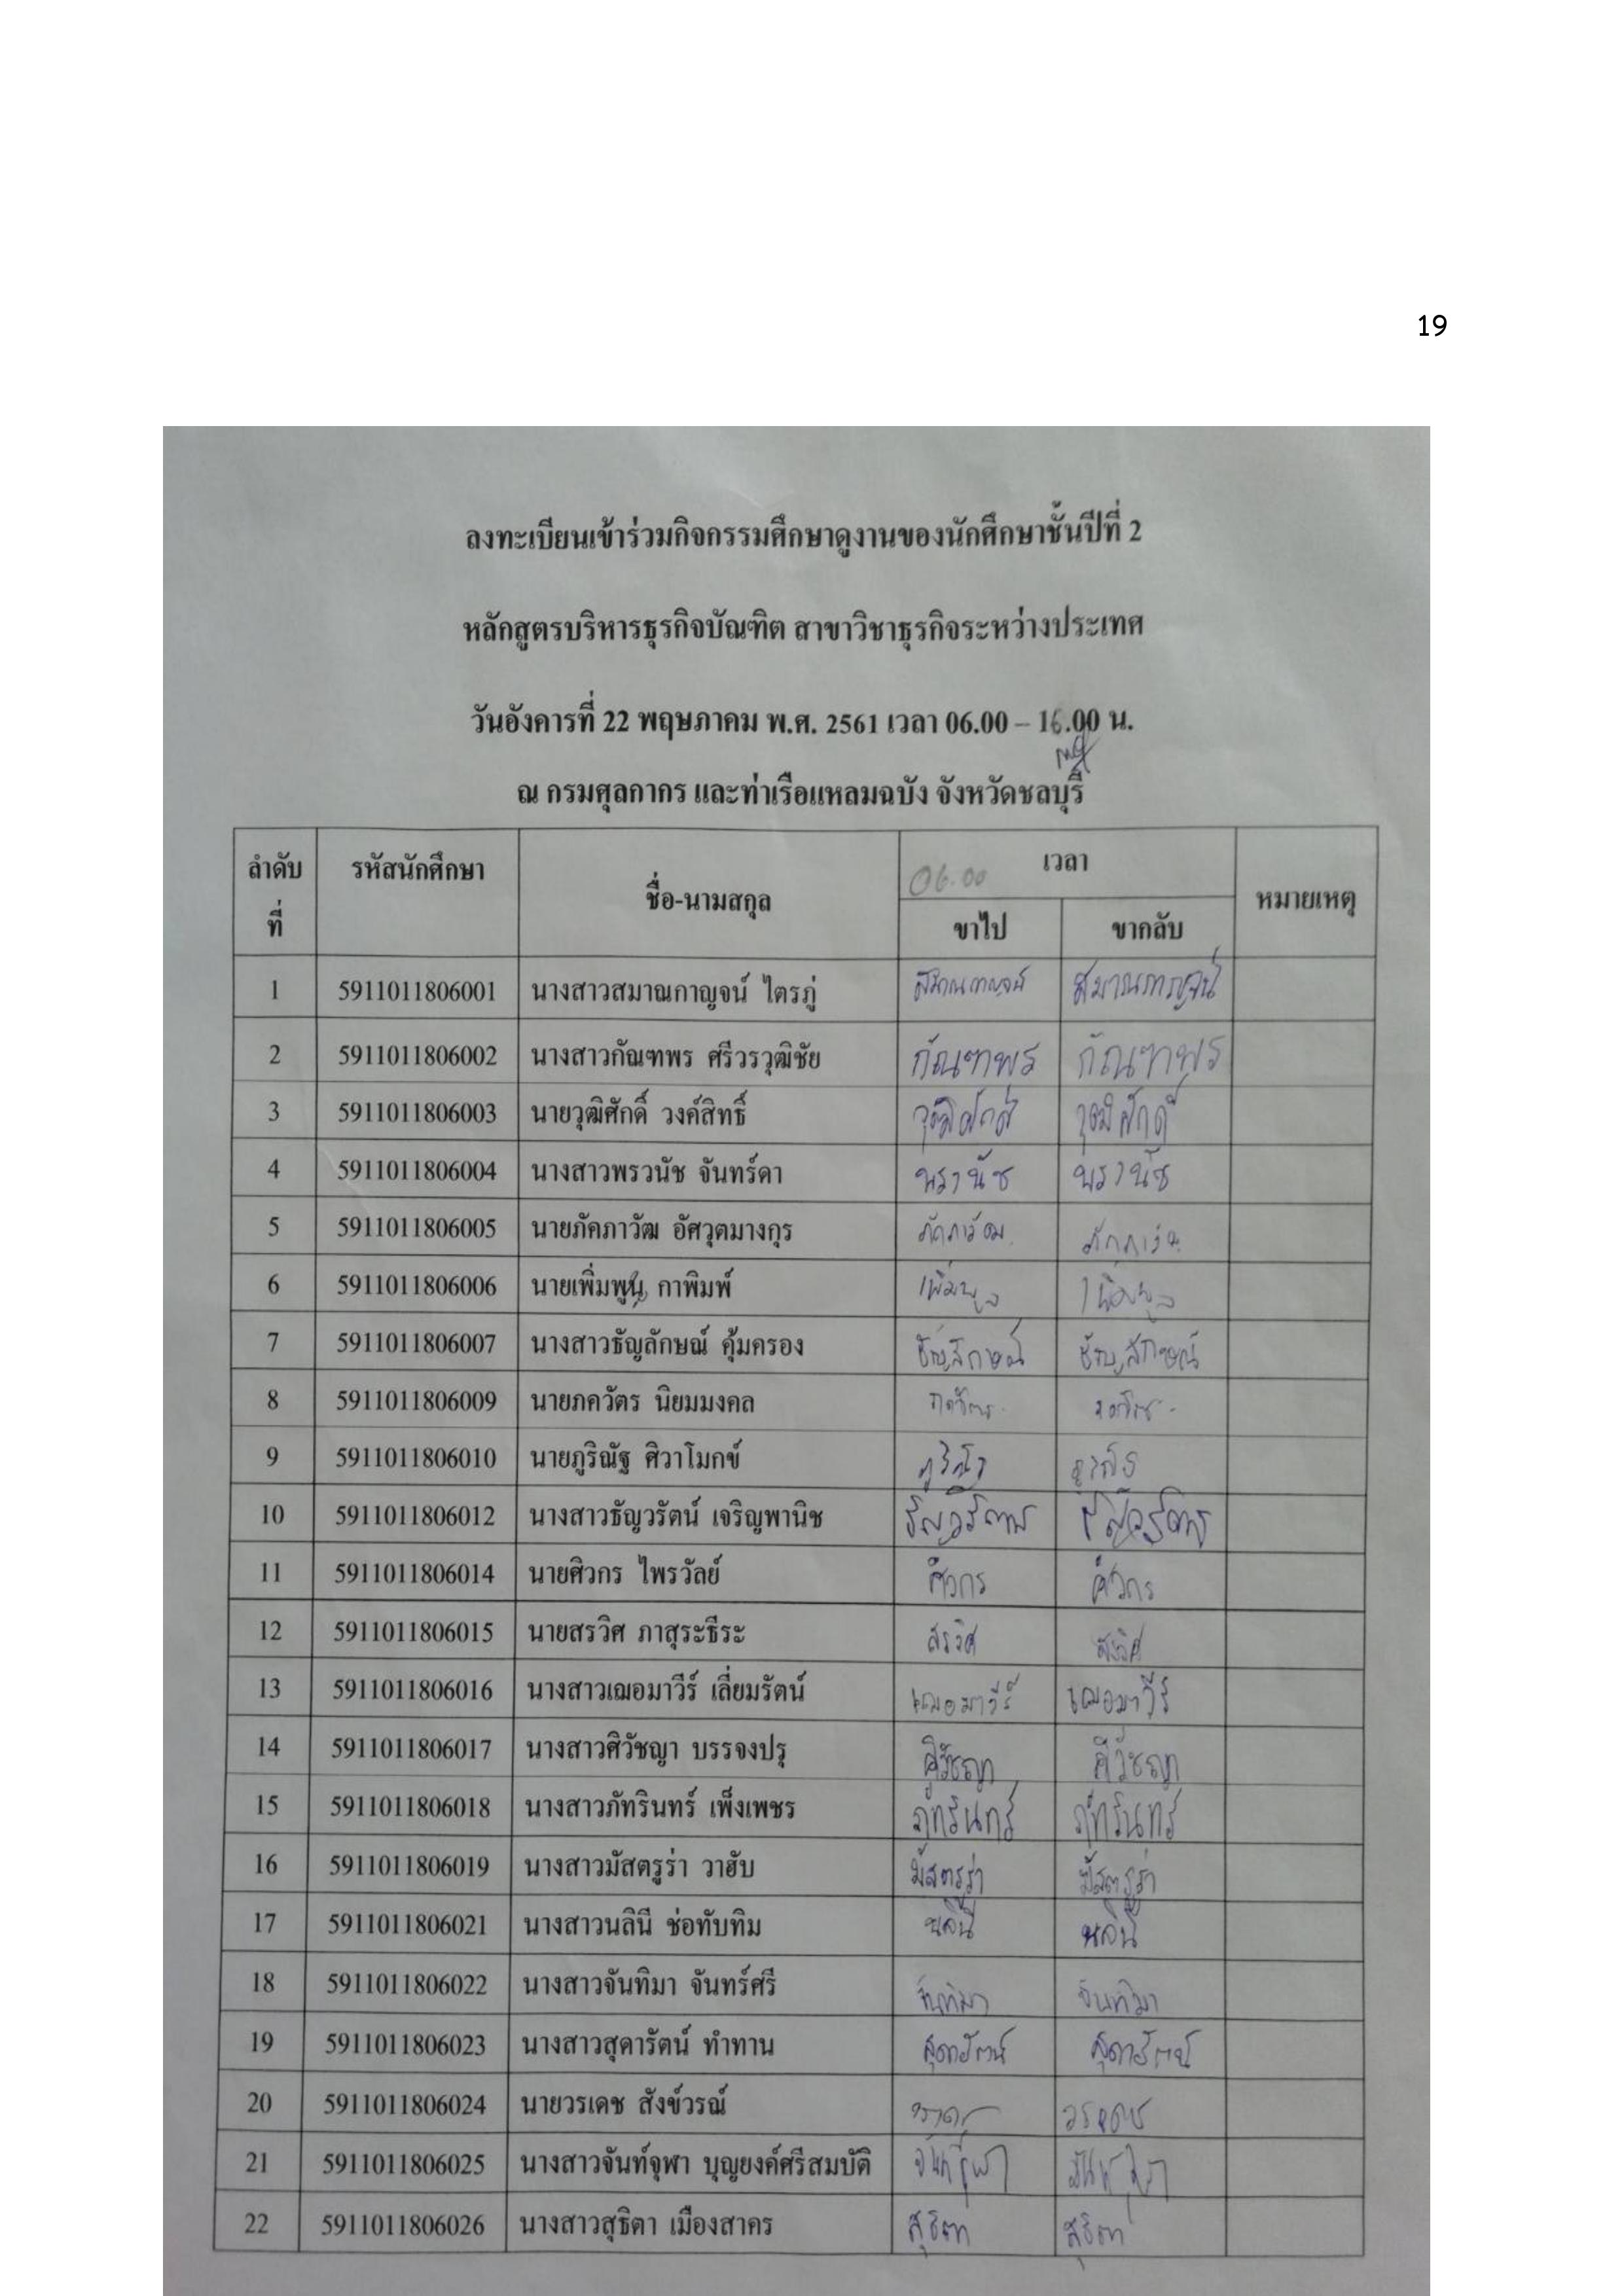 19
ลงทะเบียนเข้าร่วมกิจกรรมศึกษาดูงานของนักศึกษาชั้นปีที่ 2
หลักสูตรบริหารธุรกิจบัณฑิต สาขาวิชาธุรกิจระหว่างประเทศ
วันอังคารที่ 22 พฤษภาคม พ.ศ. 2561 เวลา 06.00 – 16.00 น.
ณ กรมศุลกากร และท่าเรือแหลมฉบัง จังหวัดชลบุรี
ลำดับที่ รหัสนักศึกษา ชื่อ-นามสกุล เวลา หมายเหตุ
06.00
ขาไป ขากลับ
1 5911011806001 นางสาวสมาณกาญจน์ ไตรภู่ สมาณกาญจน์ สมาณกาญจน์
2 5911011806002 นางสาวกัณฑพร ศรีวรวุฒิชัย กัณฑพร กัณฑพร
3 5911011806003 นายวุฒิศักดิ์ วงค์สิทธิ์ วุฒิศักดิ์ วุฒิศักดิ์
4 5911011806004 นางสาวพรวนัช จันทร์ดา พรวนัช พรวนัช
5 5911011806005 นายภัคภาวัฒ อัศวุตมางกุร
6 5911011806006 นายเพิ่มพูน กาพิมพ์ เพิ่มพูล เพิ่มพูล
7 5911011806007 นางสาวธัญลักษณ์ คุ้มครอง ธัญลักษณ์ ธัญลักษณ์
8 5911011806009 นายภควัตร นิยมมงคล ภควัตร
9 5911011806010 นายภูริณัฐ ศิวาโมกข์ ภูริณัฐ
10 5911011806012 นางสาวธัญวรัตน์ เจริญพานิช
11 5911011806014 นายศิวกร ไพรวัลย์ ศิวกร ศิวกร
12 5911011806015 นายสรวิศ ภาสุระธีระ สรวิศ สรวิศ
13 5911011806016 นางสาวเฌอมาวีร์ เลี่ยมรัตน์ เฌอมาวีร์ เฌอมาวีร์
14 5911011806017 นางสาวศิวัชญา บรรจงปรุ ศิวัชญา ศิวัชญา
15 5911011806018 นางสาวภัทรินทร์ เพ็งเพชร ภัทรินทร์ ภัทรินทร์
16 5911011806019 นางสาวมัสตรูร่า วาฮับ มัสตรูร่า มัสตรูร่า
17 5911011806021 นางสาวนลินี ช่อทับทิม นลินี นลินี
18 5911011806022 นางสาวจันทิมา จันทร์ศรี จันทิมา จันทิมา
19 5911011806023 นางสาวสุดารัตน์ ทำทาน สุดารัตน์ สุดารัตน์
20 5911011806024 นายวรเดช สังข์วรณ์ วรเดช
21 5911011806025 นางสาวจันท์จุฬา บุญยงค์ศรีสมบัติ
22 5911011806026 นางสาวสุธิตา เมืองสาคร สุธิตา สุธิตา